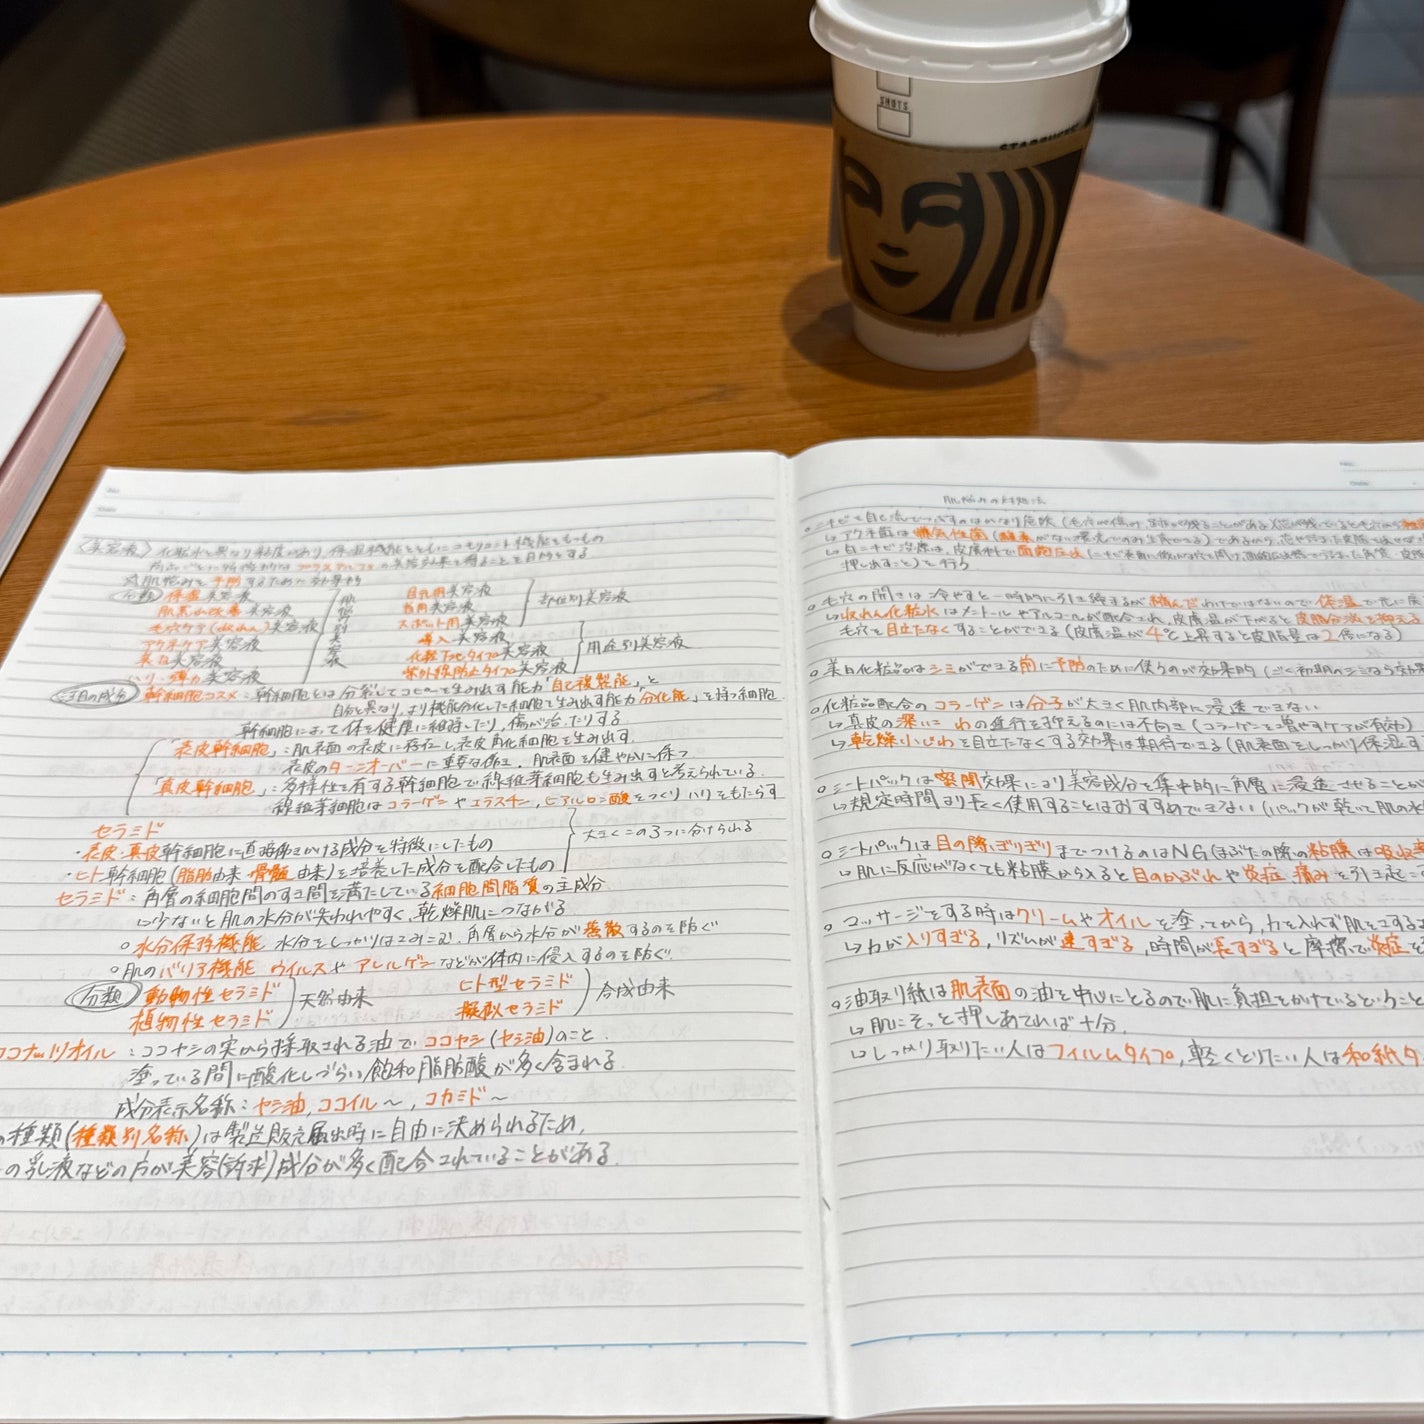 SHOTS
STARBUCKS
〈美容液〉化粧水と異なり粘度があり、保湿機能とともにエモリエント機能をもつもの
商品ごとに特徴的なプラスアルファの美容効果を得ることを目的とする
肌悩みを予防するために効果的
分類 保湿美容液
肌荒れ改善美容液
毛穴ケア(収れん)美容液
アクネケア美容液
美白美容液
ハリ・弾力美容液
肌悩み別美容液
目元用美容液
首用美容液
スポット用美容液
部位別美容液
導入美容液
化粧下地タイプ美容液
紫外線防止タイプ美容液
用途別美容液
注目の成分 幹細胞コスメ:幹細胞とは分裂してコピーを生み出す能力「自己複製能」と
自分と異なり、より機能分化した細胞を生み出す能力「分化能」を持つ細胞
幹細胞によって体を健康に維持したり、傷が治ったりする
「表皮幹細胞」:肌表面の表皮に存在し表皮角化細胞を生み出す
表皮のターンオーバーに重要な働き、肌表面を健やかに保つ
「真皮幹細胞」:多様性を有する幹細胞で線維芽細胞も生み出すと考えられている
線維芽細胞はコラーゲンやエラスチン、ヒアルロン酸をつくりハリをもたらす
セラミド
・表皮・真皮幹細胞に直接働きかける成分を特徴にしたもの
・ヒト幹細胞(脂肪由来・骨髄由来)を培養した成分を配合したもの
大きくこの3つに分けられる
セラミド:角層の細胞間のすき間を満たしている細胞間脂質の主成分
↳少ないと肌の水分が失われやすく、乾燥肌につながる
○水分保持機能 水分をしっかりはさみこむ、角層から水分が蒸散するのを防ぐ
○肌のバリア機能 ウイルスやアレルゲンなどが体内に侵入するのを防ぐ
分類 動物性セラミド
植物性セラミド
天然由来
ヒト型セラミド
擬似セラミド
合成由来
ココナッツオイル:ココヤシの実から採取される油でココヤシ(ヤシ油)のこと
塗っている間に酸化しづらい飽和脂肪酸が多く含まれる
成分表示名称:ヤシ油、ココイル〜、コカミド〜
の種類(種類別名称)は製造販売届出時に自由に決められるため、
の乳液などの方が美容(訴求)成分が多く配合されていることがある
肌悩みの対処法
○ニキビを自己流でつぶすのはかなり危険
↳アクネ菌は嫌気性菌(酸素がない環境でのみ生育できる)であるから、
↳白ニキビ治療は、皮膚科で面皰圧出
押し出すこと)を行う
○毛穴の開きは冷やすと一時的に引き締まるが縮んだわけではないので体温で元に戻
↳収れん化粧水はメントールやアルコールが配合され、皮膚温が下がると皮脂分泌を抑える
毛穴を目立たなくすることができる(皮膚温が4℃上昇すると皮脂量は2倍になる)
○美白化粧品はシミができる前に予防のために使うのが効果的(ごく初期のシミなら効果
○化粧品配合のコラーゲンは分子が大きく肌内部に浸透できない
↳真皮の深いしわの進行を抑えるのには不向き(コラーゲンを増やすケアが有効)
↳乾燥小じわを目立たなくする効果は期待できる(肌表面をしっかり保湿す
○シートパックは密閉効果により美容成分を集中的に角層に浸透させることが
↳規定時間より長く使用することはおすすめできない(パックが乾いて肌の水
○シートパックは目の際ぎりぎりまでつけるのはNG(まぶたの際の粘膜は吸収率
↳肌に反応がなくても粘膜から入ると目のかぶれや炎症、痛みを引き起こす
○マッサージをする時はクリームやオイルを塗ってから、力を入れず肌をこするよ
↳力が入りすぎる、リズムが速すぎる、時間が長すぎると摩擦で炎症を
○油取り紙は肌表面の油を中心にとるので肌に負担をかけているということ
↳肌にそっと押しあてれば十分
↳しっかり取りたい人はフィルムタイプ、軽くとりたい人は和紙タ